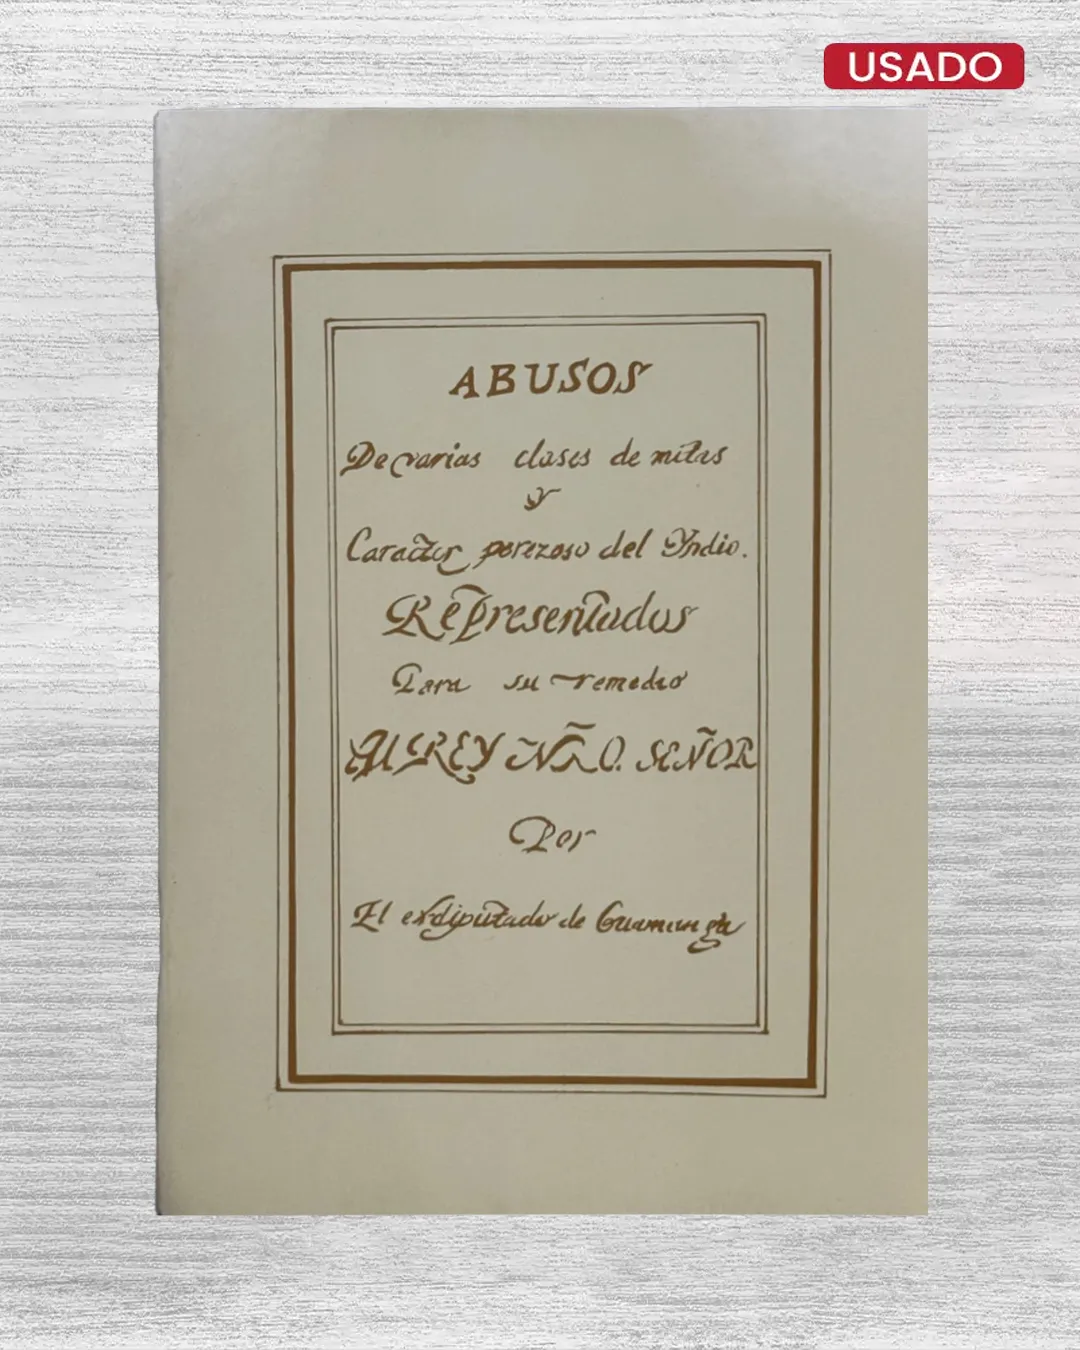 USADO
ABUSOS
De varias clases de mitas
y
Caracter perezoso del Yndio.
Representados
Para su remedio
Al REY Ñ̃O. SEÑOR
Por
El exdiputado de Guamanga